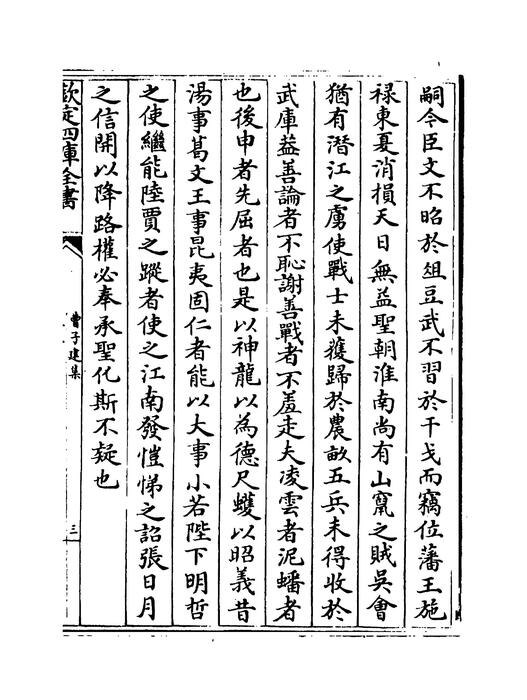 嗣今臣文不昭於俎豆武不習於干戈而竊位藩王施
禄東夏消損天日無益聖朝淮南尚有山竄之賊吳會
猶有潜江之虜使戰士未獲歸於農畝五兵未得收於
武庫葢善論者不恥謝善戰者不羞走夫凌雲者泥蟠者
也後申者先屈者也是以神龍以為德尺蠖以昭義昔
湯事葛文王事昆夷固仁者能以大事小若陛下明哲
之使繼能陸賈之蹤者使之江南發愷悌之詔張日月
之信開以降路權必奉承聖化斯不疑也
欽定四庫全書
曹子建集
三